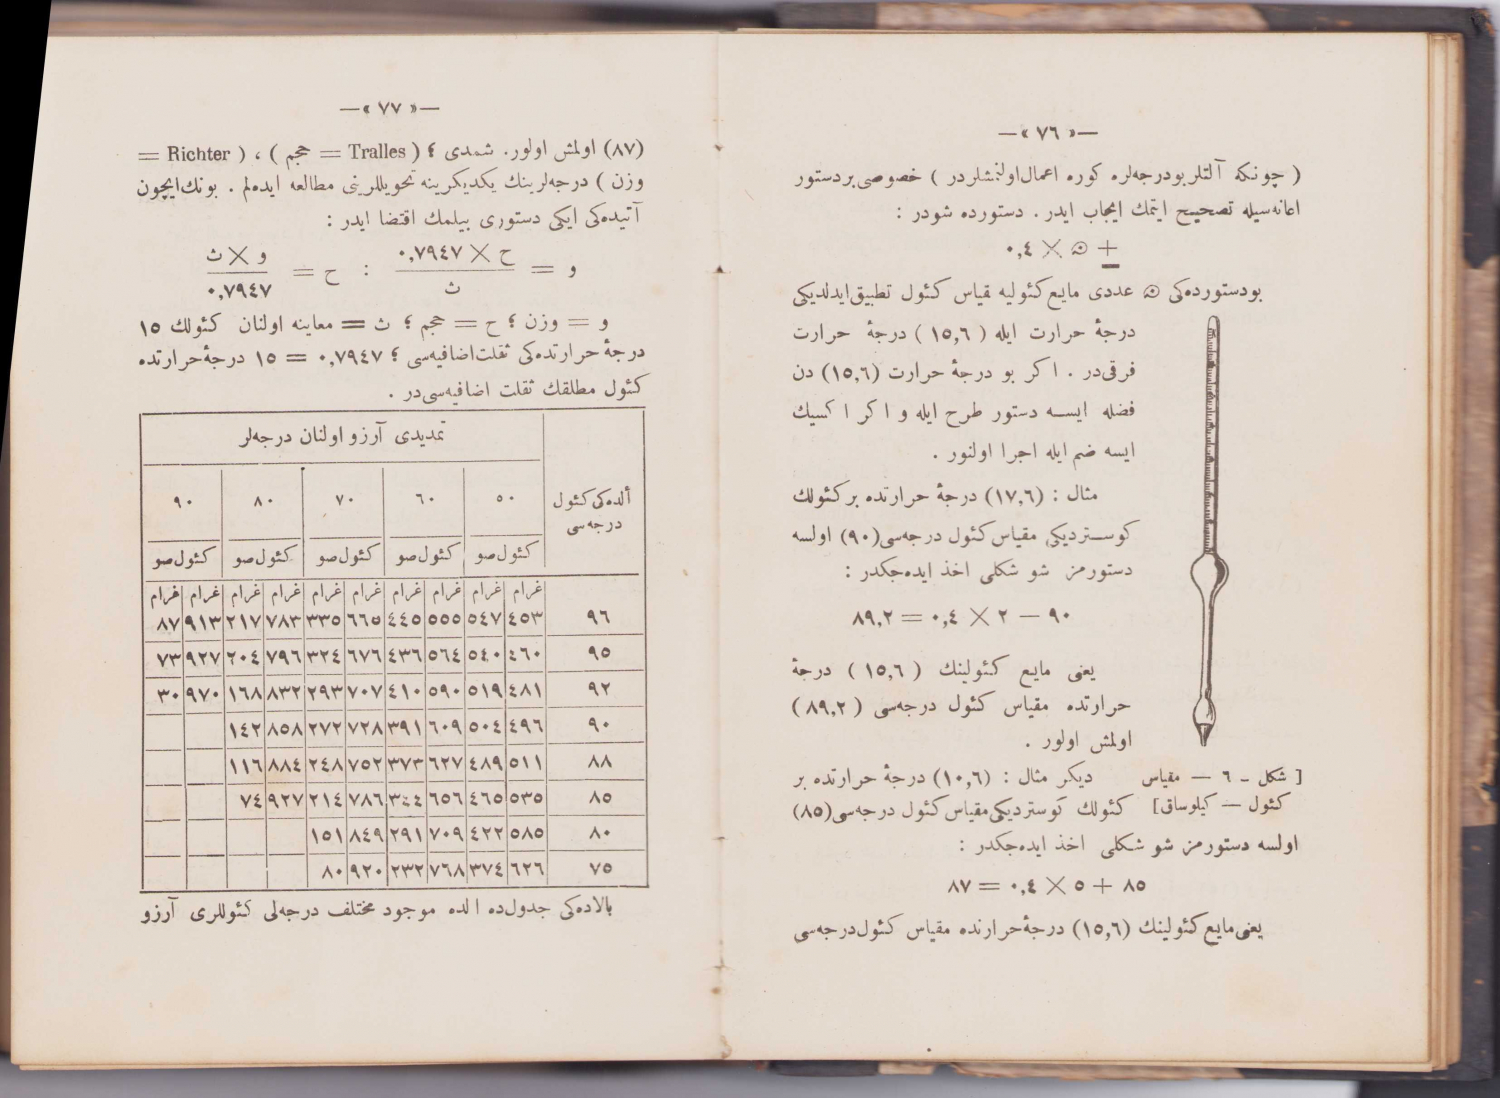 —« ٧٦ »—
( چونكه آلتلر بودرجه‌لره كوره اعمال اولنمشلردر ) خصوصی بر دستور
اعانه‌سیله تصحیح ایتمك ایجاب ایدر . دستورده شودر :
± ۞ × ٠,٤
بودستورده‌كی ۞ عددی مایع كئولیه مقیاس كئول تطبیق ایدلدیكی
درجهٔ حرارت ایله ( ١٥,٦ ) درجهٔ حرارت
فرقی‌در . اكر بو درجهٔ حرارت (١٥,٦) دن
فضله ایسه دستور طرح ایله و اكر اكسیك
ایسه ضم ایله اجرا اولنور .
مثال : (١٧,٦) درجهٔ حرارتده بر كئولك
كوستردیكی مقیاس كئول درجه‌سی (٩٠) اولسه
دستورمز شو شكلی اخذ ایده‌جكدر :
٩٠ — ٢ × ٠,٤ = ٨٩,٢
یعنی مایع كئولینك ( ١٥,٦ ) درجهٔ
حرارتده مقیاس كئول درجه‌سی ( ٨٩,٢ )
اولمش اولور .
[ شكل ـ ٦ — مقیاس
كئول — كیلوساق ]
دیكر مثال : (١٠,٦) درجهٔ حرارتده بر
كئولك كوستردیكی مقیاس كئول درجه‌سی (٨٥)
اولسه دستورمز شو شكلی اخذ ایده‌جكدر :
٨٥ + ٥ × ٠,٤ = ٨٧
یعنی مایع كئولینك (١٥,٦) درجهٔ حرارتده مقیاس كئول درجه‌سی
—« ٧٧ »—
(٨٧) اولمش اولور. شمدی ؛ ( Tralles = حجم ) ، ( Richter =
وزن ) درجه‌لرینك یكدیكرینه تحویللرینی مطالعه ایده‌لم . بونك ایچون
آتیده‌كی ایكی دستوری بیلمك اقتضا ایدر :
و = ح × ٠,٧٩٤٧ / ث : ح = و × ث / ٠,٧٩٤٧
و = وزن ؛ ح = حجم ؛ ث = معاینه اولنان كئولك ١٥
درجهٔ حرارتده‌كی ثقلت اضافیه‌سی ؛ ٠,٧٩٤٧ = ١٥ درجهٔ حرارتده
كئول مطلقك ثقلت اضافیه‌سی‌در .
ألده‌كی كئول درجه‌سی | تمدیدی آرزو اولنان درجه‌لر
٥٠ | ٦٠ | ٧٠ | ٨٠ | ٩٠
كئول صو | كئول صو | كئول صو | كئول صو | كئول صو
غرام | غرام | غرام | غرام | غرام | غرام | غرام | غرام | غرام | غرام
٩٦ | ٤٥٣ | ٥٤٧ | ٥٥٥ | ٤٤٥ | ٦٦٥ | ٣٣٥ | ٧٨٣ | ٢١٧ | ٩١٣ | ٨٧
٩٥ | ٤٦٠ | ٥٤٠ | ٥٦٤ | ٤٣٦ | ٦٧٦ | ٣٢٤ | ٧٩٦ | ٢٠٤ | ٩٢٧ | ٧٣
٩٢ | ٤٨١ | ٥١٩ | ٥٩٠ | ٤١٠ | ٧٠٧ | ٢٩٣ | ٨٣٢ | ١٦٨ | ٩٧٠ | ٣٠
٩٠ | ٤٩٦ | ٥٠٤ | ٦٠٩ | ٣٩١ | ٧٢٨ | ٢٧٢ | ٨٥٨ | ١٤٢
٨٨ | ٥١١ | ٤٨٩ | ٦٢٧ | ٣٧٣ | ٧٥٢ | ٢٤٨ | ٨٨٤ | ١١٦
٨٥ | ٥٣٥ | ٤٦٥ | ٦٥٦ | ٣٤٤ | ٧٨٦ | ٢١٤ | ٩٢٧ | ٧٤
٨٠ | ٥٨٥ | ٤٢٢ | ٧٠٩ | ٢٩١ | ٨٤٩ | ١٥١
٧٥ | ٦٢٦ | ٣٧٤ | ٧٦٨ | ٢٣٢ | ٩٢٠ | ٨٠
بالاده‌كی جدول‌ده الده موجود مختلف درجه‌لی كئوللری آرزو